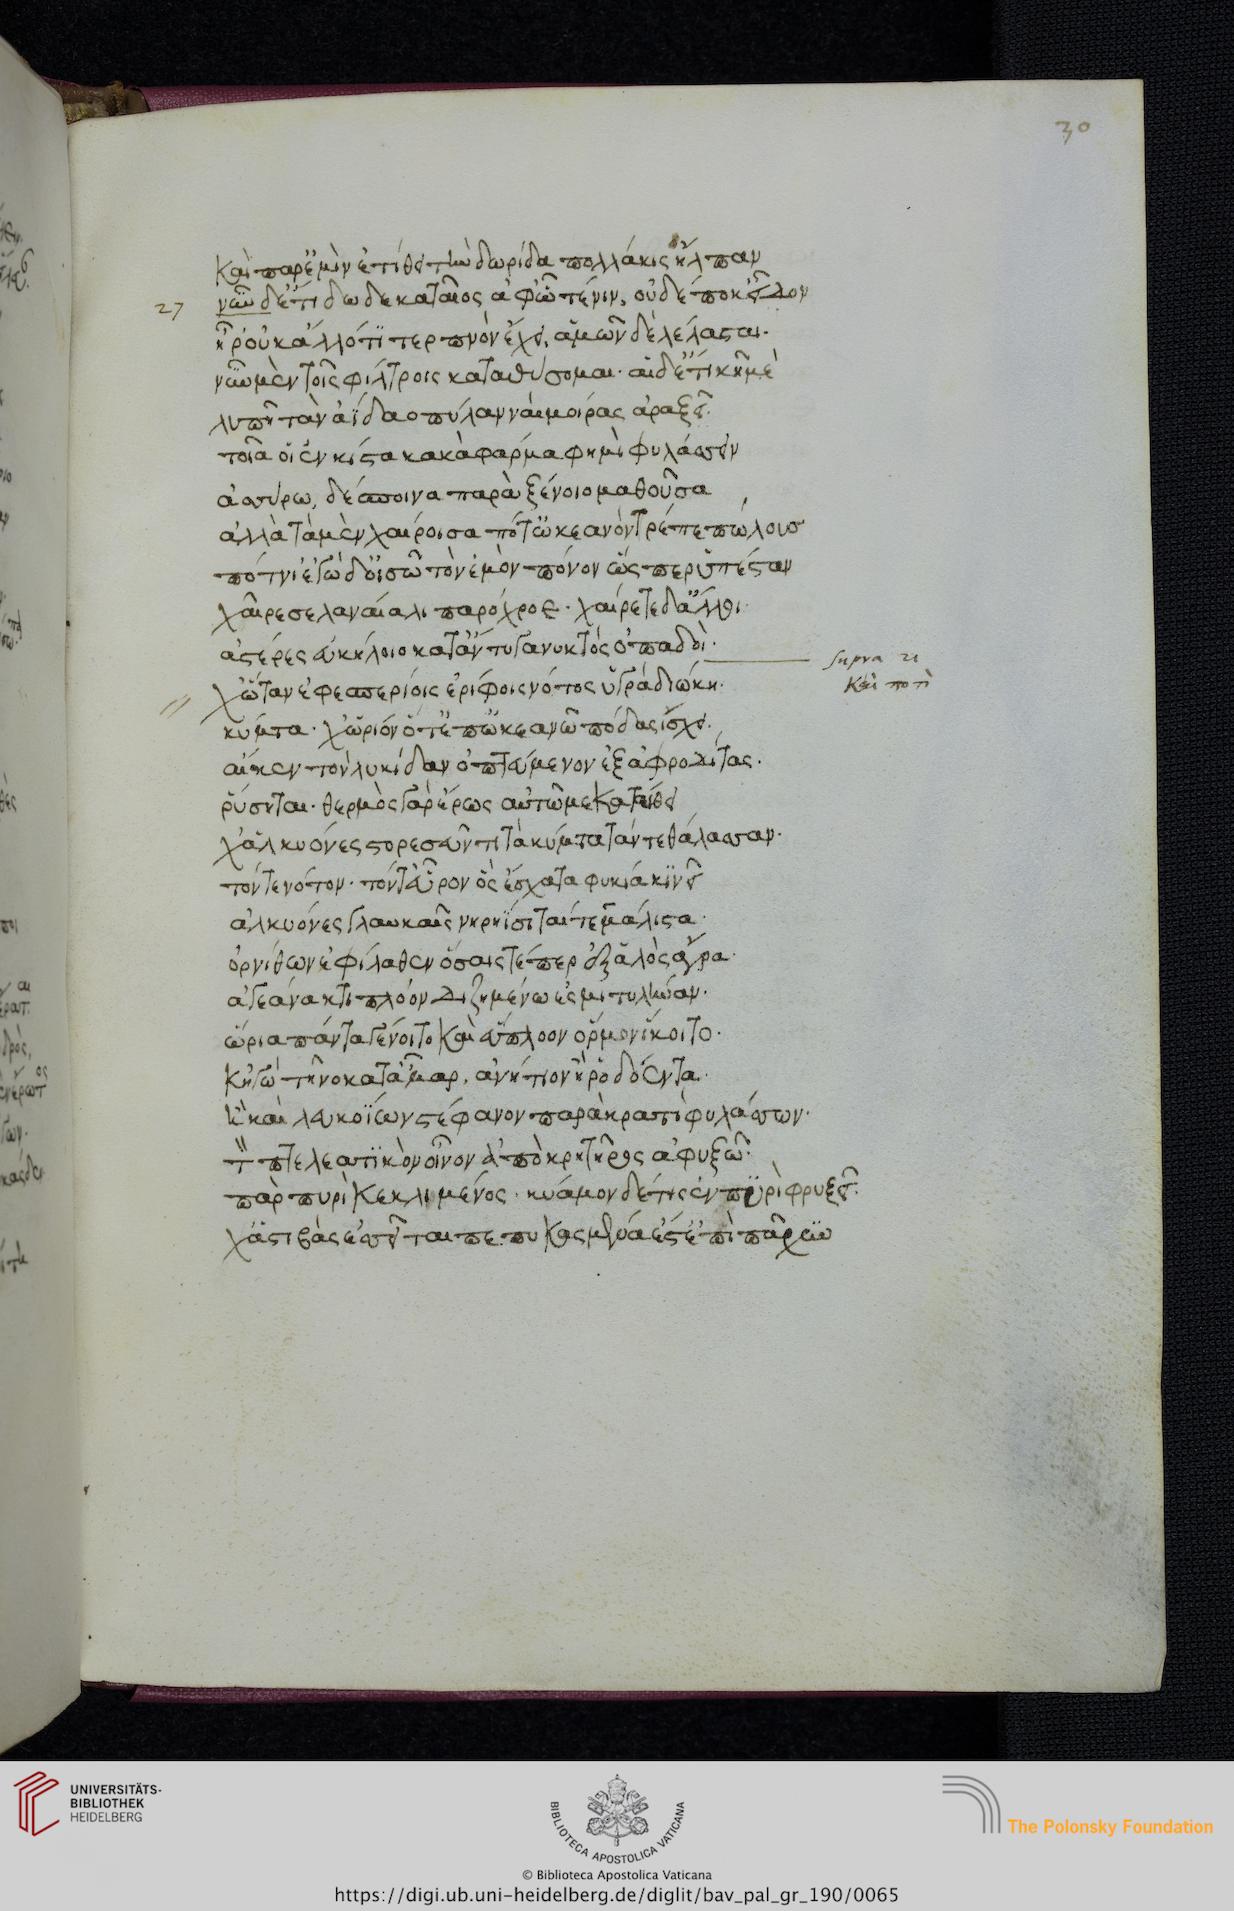 30
καὶ παρ' ἐμὶν ἐτίθει τὰν δωρίδα πολλάκις ὄλπαν
27 νῦν δ' ἔτι δωδεκαταῖος ἀφ' ὧ τέ νιν, οὐδέποκ' εἶδον
ἦρ' οὐκ ἄλλό τι τερπνὸν ἔχει, ἁμῶν δὲ λέλασται.
νῦν μὲν τοῖς φίλτροις καταθύσομαι. αἰ δ' ἔτι κἠμὲ
λυπῆ τὰν ἀΐδαο πύλαν ναὶ μοίρας ἀραξεῖ.
τοῖα οἱ ἐν κίστα κακὰ φάρμα φημὶ φυλάσσειν
ἀσσυρίω, δέσποινα παρὰ ξένοιο μαθοῦσα
ἀλλὰ τὰ μὲν χαίροισα ποτ' ὠκεανὸν τρέπε πώλους
πότνι' ἐγὼ δ' οἰσῶ τὸν ἐμὸν πόνον ὥσπερ ὑπέσταν
χαῖρε σελαναία λιπαρόχροε. χαίρετε δ' ἄλλοι
ἀστέρες εὐκήλοιο κατ' ἄντυγα νυκτὸς ὀπαδοί.
supra 21
Κἠν ποτὶ
χὤταν ἐφ' ἑσπερίοις ἐρίφοις νότος ὑγρὰ διώκη.
κύματα. χὠρίων ὅτ' ἐπ' ὠκεανῶ πόδας ἴσχει.
αἴκεν τὸν λυκίδαν ὀπτεύμενον ἐξ ἀφροδίτας.
ῥύσηται. θερμὸς γὰρ ἔρως αὐτῶ με καταίθει
χἀλκυόνες στορεσεῦντι τὰ κύματα τάν τε θάλασσαν.
τόν τε νότον. τόν τ' εὖρον ὃς ἔσχατα φυκία κινεῖ
ἀλκυόνες γλαυκαῖς νηρηΐσι ταί τε μάλιστα.
ὀρνίθων ἐφίλαθεν ὅσαις τέ περ ἐξ ἁλὸς ἄγρα.
ἀγεάνακτι πλόον διζημένω ἐς μιτυλήναν.
ὥρια πάντα γένοιτο καὶ εὔπλοον ὅρμον ἵκοιτο.
κἠγὼ τῆνο κατ' ἆμαρ, ἀνήτιον ἢ ῥοδόεντα.
ἢ καὶ λευκοΐων στέφανον παρὰ κρατὶ φυλάσσων.
τ πτελεατικὸν οἶνον ἀπὸ κρητῆρος ἀφυξῶ.
πὰρ πυρὶ κεκλιμένος. κύαμον δέ τις ἐν πυρὶ φρυξεῖ.
χἁ στιβὰς ἐσσεῖται πεπυκασμένα ἔστ' ἐπὶ πᾶχυν
UNIVERSITÄTS-
BIBLIOTHEK
HEIDELBERG
BIBLIOTECA APOSTOLICA VATICANA
The Polonsky Foundation
© Biblioteca Apostolica Vaticana
https://digi.ub.uni-heidelberg.de/diglit/bav_pal_gr_190/0065